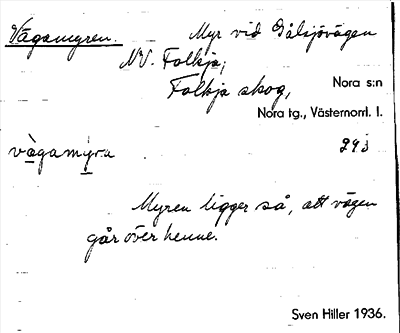 Vågamyren. Myr vid Gålsjövägen
NV. Folkja,
Folkja skog, Nora s:n
Nora tg., Västernorrl. l.
vågamyra
Myren ligger så, att vägen
går över henne.
Sven Hiller 1936.